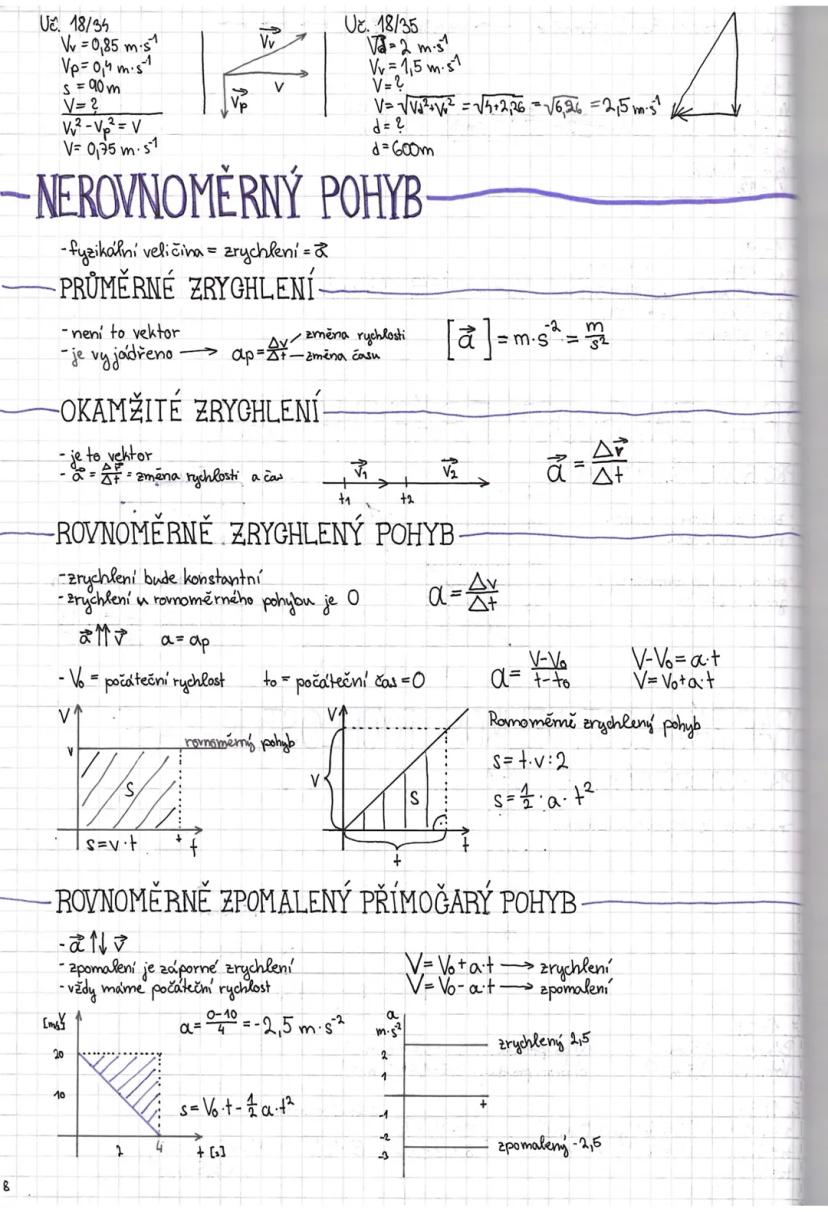 Uč. 18/34
Vv = 0,85 m·s⁻¹
Vp = 0,4 m·s⁻¹
s = 90m
V = ?
Vv² - Vp² = V
V = 0,75 m·s⁻¹
Vv
V
Vp
Uč. 18/35
Vd = 2 m·s⁻¹
Vv = 1,5 m·s⁻¹
V = ?
V = √Vd²+Vv² = √4+2,26 = √6,26 = 2,5 m·s⁻¹
d = ?
d = 600m
NEROVNOMĚRNÝ POHYB
- fyzikální veličina = zrychlení = a⃗
PRŮMĚRNÉ ZRYCHLENÍ
- není to vektor
- je vyjádřeno → ap = Δv/Δt
změna rychlosti
změna času
[a⃗] = m·s⁻² = m/s²
OKAMŽITÉ ZRYCHLENÍ
- je to vektor
- a⃗ = Δv⃗/Δt = změna rychlosti a čas
v⃗1 v⃗2
t1 t2
a⃗ = Δv⃗/Δt
ROVNOMĚRNĚ ZRYCHLENÝ POHYB
- zrychlení bude konstantní
- zrychlení u rovnoměrného pohybu je 0
a = Δv/Δt
a⃗ ↑↑ v⃗ a = ap
- V0 = počáteční rychlost t0 = počáteční čas = 0
a = V-V0/t-t0
V-V0 = a·t
V = V0+a·t
V
v
rovnoměrný pohyb
S
t
t
s=v·t
V
V
S
t
t
Rovnoměrně zrychlený pohyb
s = t·v:2
s = 1/2 · a · t²
ROVNOMĚRNĚ ZPOMALENÝ PŘÍMOČARÝ POHYB
- a⃗ ↑↓ v⃗
- zpomalení je záporné zrychlení
- vždy máme počáteční rychlost
V = V0 + a·t → zrychlení
V = V0 - a·t → zpomalení
20
10
2
4
t [s]
a = 0-10/4 = -2,5 m·s⁻²
s = V0·t - 1/2 a·t²
a
m·s²
2
1
-1
-2
-3
t
zrychlený 2,5
zpomalený -2,5
8